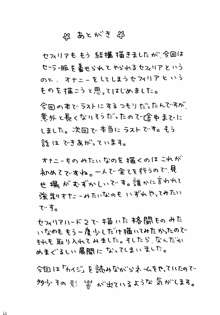 ☆ あとがき ☆
セフィリアももう結構描きましたが、今回は
セーラー服を着せられてやられるセフィリアという
のと、オナニーをしてしまうセフィリアという
ものを描こうと思ってはじめました。
今回の本でラストにするつもりだったんですが、
意外と長くなりそうだったので途中までに
しました。次回で本当にラストです。もう
話はできあがっています。
オナニーものみたいなのを描くのはこれが
初めてですね。一人で全てを行うので、見
せ場がむずかしいです。誰かに言われて
強制オナニーみたいなのもいずれやってみたい
です。
セフィリアハード2で描いた格闘ものみた
いなのをもう一度少しだけ描いてみたかったので
それも取り入れてみました。そしたら、なんだか
めまぐるしい展開になってしまいました。
今回は「カイジ」を読みながらネームをやっていたので
多少その
が出ているような気がします。